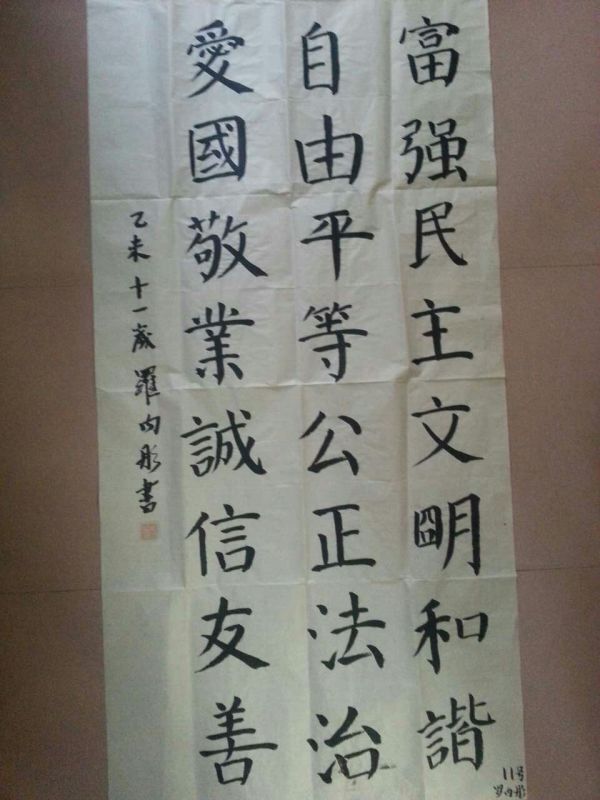 富强民主文明和諧
自由平等公正法治
愛國敬業誠信友善
乙未十一歲羅向彤書
11号
罗向彤